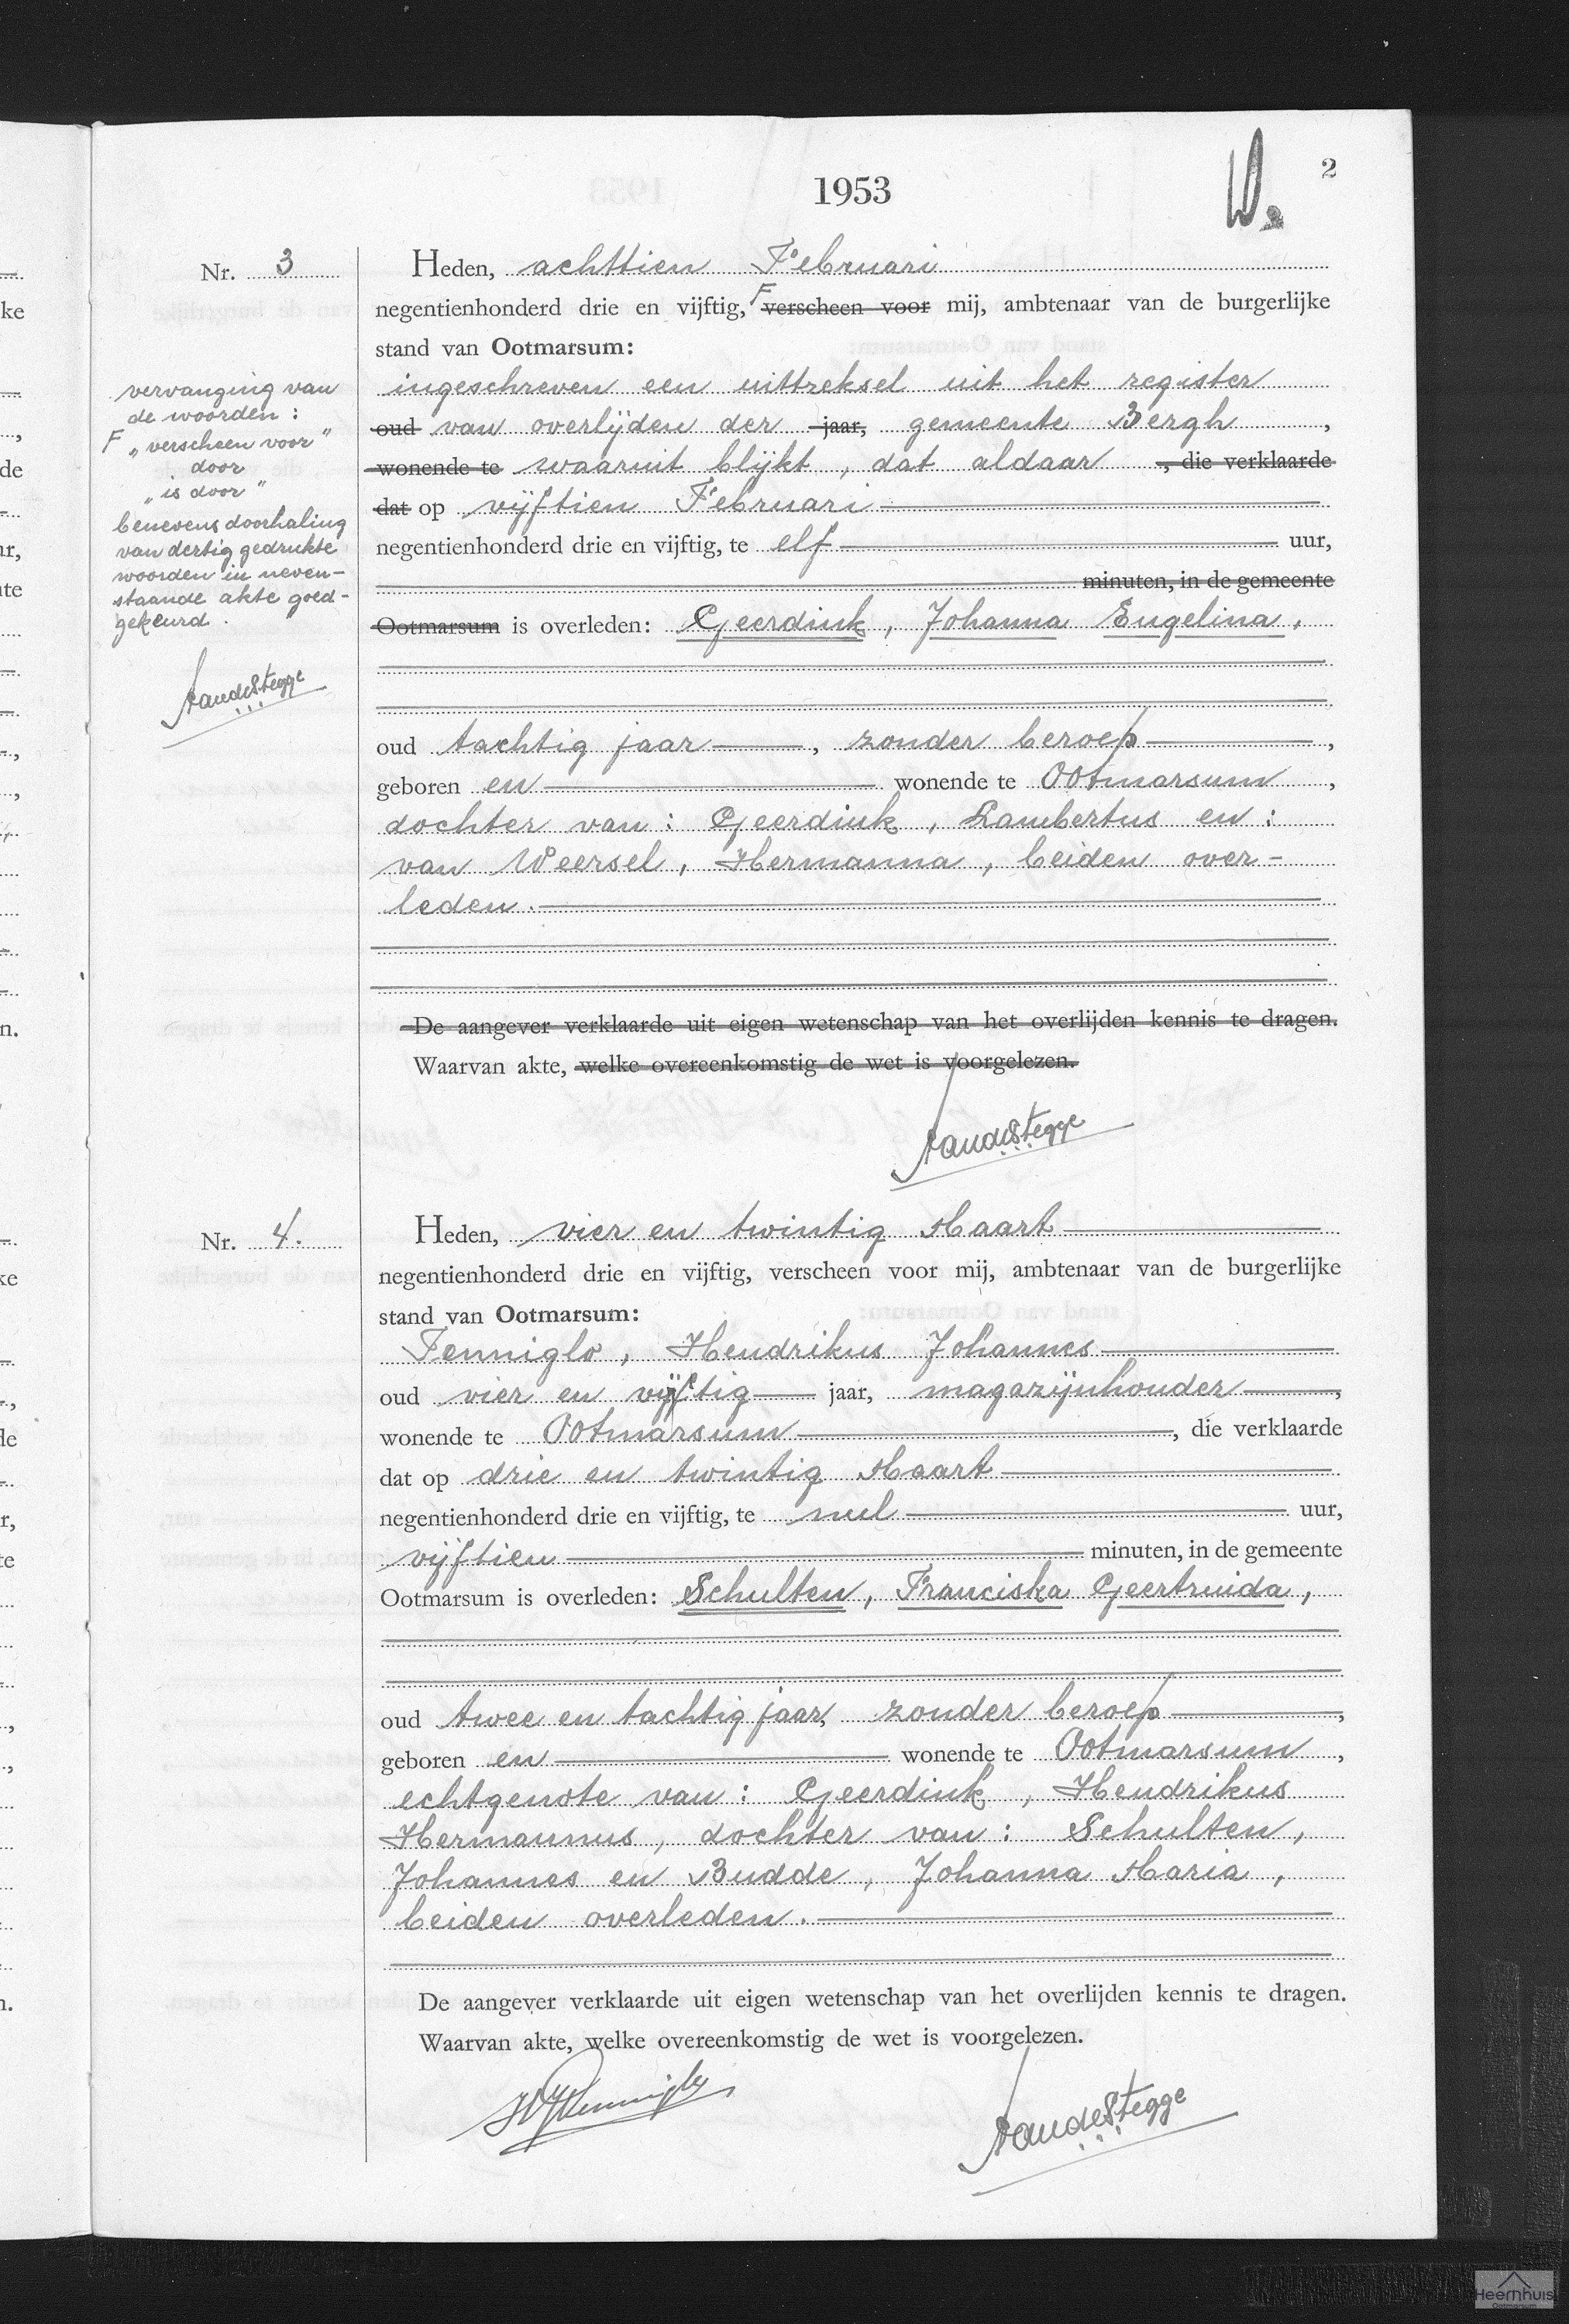 2
1953
Nr. 3
Heden, achttien Februari
negentienhonderd drie en vijftig, F verscheen voor mij, ambtenaar van de burgerlijke
stand van Ootmarsum:
ingeschreven een uittreksel uit het register
oud van overlijden der jaar, gemeente Bergh,
wonende te waaruit blijkt, dat aldaar, die verklaarde
dat op vijftien Februari
negentienhonderd drie en vijftig, te elf uur,
minuten, in de gemeente
Ootmarsum is overleden: Geerdink, Johanna Engelina,
oud tachtig jaar, zonder beroep,
geboren en wonende te Ootmarsum,
dochter van: Geerdink, Lambertus en:
van Weersel, Hermanna, beiden over-
leden.
De aangever verklaarde uit eigen wetenschap van het overlijden kennis te dragen.
Waarvan akte, welke overeenkomstig de wet is voorgelezen.
vervanging van
de woorden:
F „verscheen voor"
door
„is door"
benevens doorhaling
van dertig gedrukte
woorden in neven-
staande akte goed-
gekeurd.
Nr. 4.
Heden, vier en twintig Maart
negentienhonderd drie en vijftig, verscheen voor mij, ambtenaar van de burgerlijke
stand van Ootmarsum:
Tenniglo, Hendrikus Johannes
oud vier en vijftig jaar, magazijnhouder,
wonende te Ootmarsum, die verklaarde
dat op drie en twintig Maart
negentienhonderd drie en vijftig, te nul uur,
vijftien minuten, in de gemeente
Ootmarsum is overleden: Schulten, Franciska Geertruida,
oud twee en tachtig jaar, zonder beroep,
geboren en wonende te Ootmarsum,
echtgenote van: Geerdink, Hendrikus
Hermannus, dochter van: Schulten,
Johannes en Budde, Johanna Maria,
beiden overleden.
De aangever verklaarde uit eigen wetenschap van het overlijden kennis te dragen.
Waarvan akte, welke overeenkomstig de wet is voorgelezen.
Heemhuis
Ootmarsum